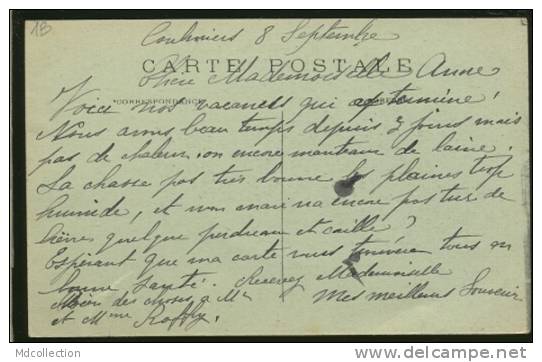 13
Coulmiers 8 Septembre
CARTE POSTALE
Chère Mademoiselle Anne
CORRESPONDANCE
Voici nos vacances qui termine!
Nous avons beau temps depuis 3 jours mais
pas de chaleur on encore manteau de laine.
La chasse pas très bonne les plaines trop
humide, et mon mari na encore pas tué de
lièvres quelque perdreau et caille?
Espérant que ma carte vous trouvera tous en
bonne Santé. Recevez Mademoiselle
Mes meilleurs Souvenirs
bien des choses a Mr
et Mme
MDCollection
www.delcampe.net